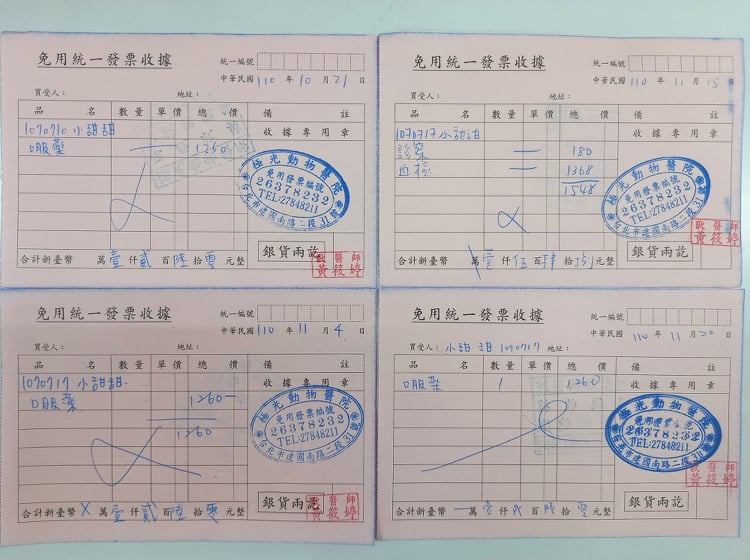 免用統一發票收據
統一編號
中華民國 110 年 10 月 21 日
買受人: 地址:
品名 數量 單價 總價 備註
1070710 小甜甜 收據專用章
口服藥 1260
極光動物醫院
免用發票編號
26378232
TEL:27848211
台北市建國南路二段31號
合計新臺幣 萬壹仟貳百陸拾零元整
銀貨兩訖
獸醫師
黃筱婷
免用統一發票收據
統一編號
中華民國 110 年 11 月 15 日
買受人: 地址:
品名 數量 單價 總價 備註
1070717 小甜甜 收據專用章
診察 180
血檢 1368
1548
極光動物醫院
免用發票編號
26378232
TEL:27848211
台北市建國南路二段31號
合計新臺幣 萬壹仟伍百肆拾捌元整
銀貨兩訖
獸醫師
黃筱婷
免用統一發票收據
統一編號
中華民國 110 年 11 月 4 日
買受人: 地址:
品名 數量 單價 總價 備註
1070717 小甜甜 收據專用章
口服藥 1260
1260
極光動物醫院
免用發票編號
26378232
TEL:27848211
台北市建國南路二段31號
合計新臺幣 X 萬壹仟貳百陸拾零元整
銀貨兩訖
獸醫師
黃筱婷
免用統一發票收據
統一編號
中華民國 110 年 11 月 20 日
買受人: 小甜甜 1070717 地址:
品名 數量 單價 總價 備註
口服藥 1 1260 收據專用章
極光動物醫院
26378232
TEL:27848211
台北市建國南路二段31號
合計新臺幣 一萬壹仟貳百陸拾零元整
銀貨兩訖
獸醫師
黃筱婷